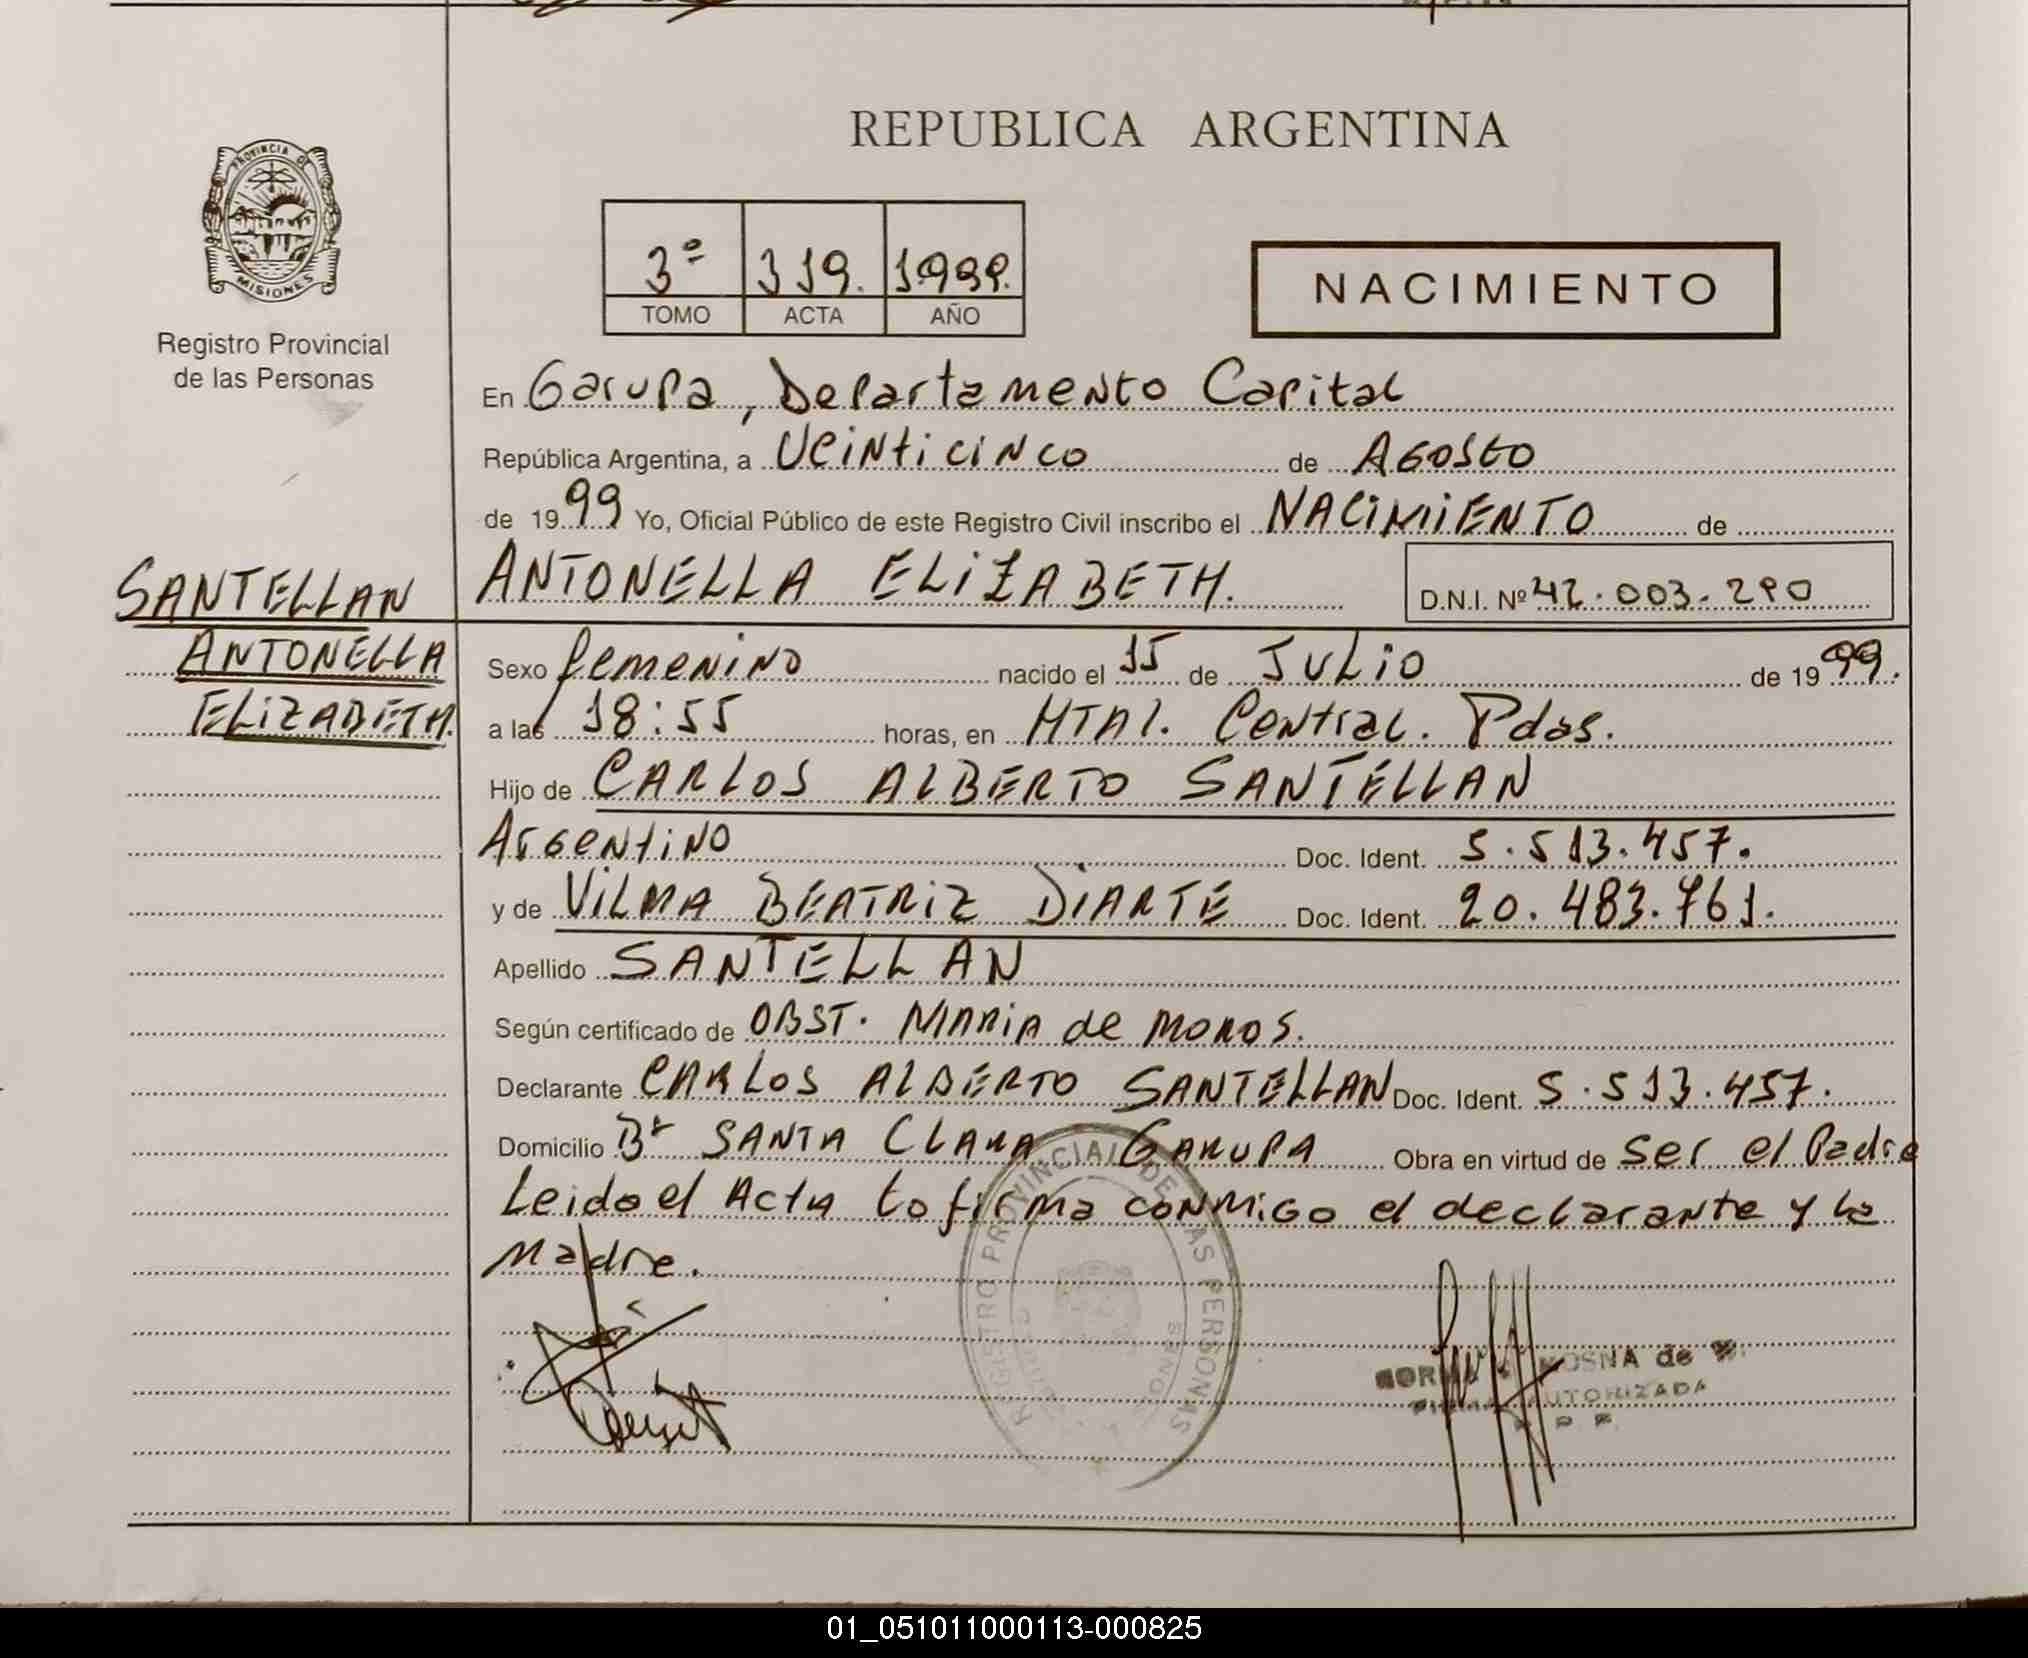 REPUBLICA ARGENTINA
PROVINCIA DE
MISIONES
Registro Provincial
de las Personas
3º 319. 1.999.
TOMO ACTA AÑO
NACIMIENTO
En Garupa, Departamento Capital
República Argentina, a Veinticinco de Agosto
de 1999 Yo, Oficial Público de este Registro Civil inscribo el NACIMIENTO de
ANTONELLA ELIZABETH.
D.N.I. Nº 42.003.290
SANTELLAN
ANTONELLA
ELIZABETH.
Sexo femenino nacido el 15 de Julio de 1999.
a las 18:55 horas, en Htal. Central. Pdas.
Hijo de CARLOS ALBERTO SANTELLAN
Argentino Doc. Ident. 5.513.457.
y de VILMA BEATRIZ DIARTE Doc. Ident. 20.483.761.
Apellido SANTELLAN
Según certificado de OBST. MARIA de MOROS.
Declarante CARLOS ALBERTO SANTELLAN Doc. Ident. 5.513.457.
Domicilio Bº SANTA CLARA GARUPA Obra en virtud de ser el Padre
Leido el Acta lo firma conmigo el declarante y la
Madre.
REGISTRO PROVINCIAL DE LAS PERSONAS
MOSNA de
AUTORIZADA
01_051011000113-000825